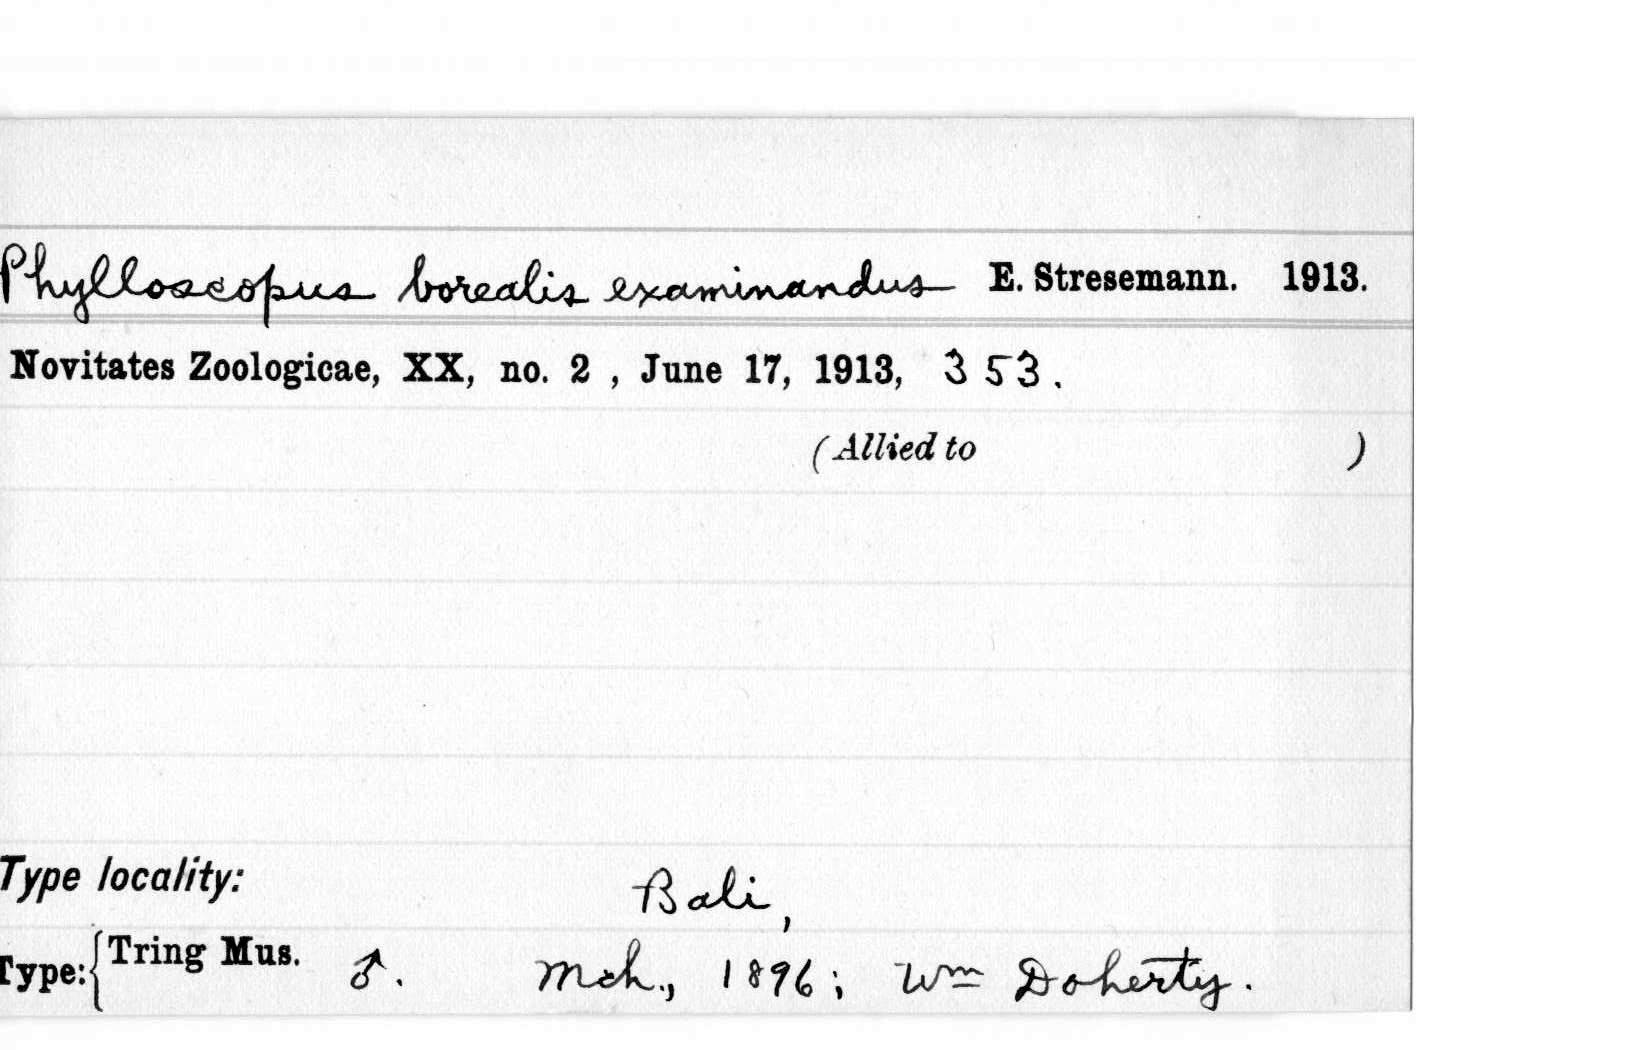 Phylloscopus borealis examinandus E. Stresemann. 1913.
Novitates Zoologicae, XX, no. 2 , June 17, 1913, 353.
(Allied to )
Type locality: Bali,
Type: { Tring Mus. ♂. Mch., 1896; Wm Doherty.